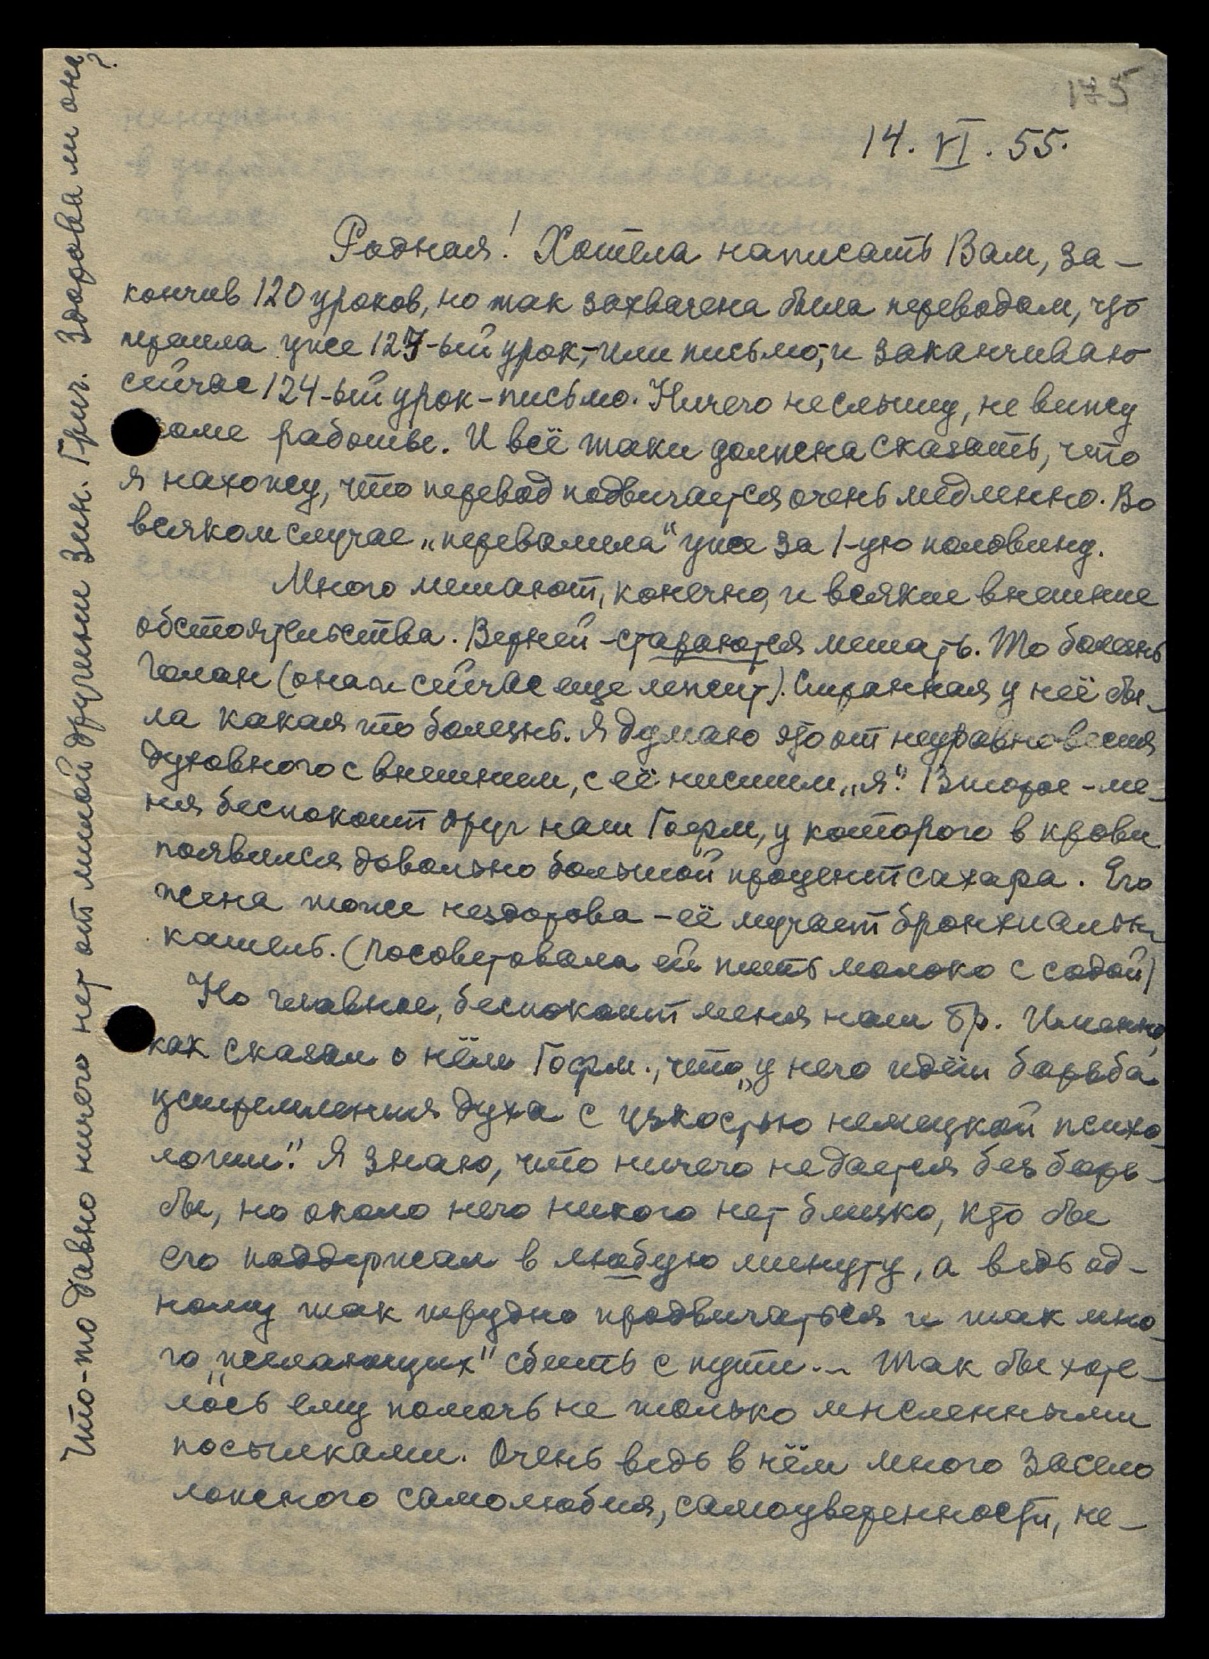 175
14. VI. 55.
Родная! Хотела написать Вам, за-
кончив 120 уроков, но так захвачена была переводом, что
перешла уже 123-ый урок,-или письмо,-и заканчиваю
сейчас 124-ый урок-письмо. Ничего не слышу, не вижу
роме работы. И всё таки должна сказать, что
я нахожу, что перевод подвигается очень медленно. Во
всяком случае „перевалила" уже за 1-ую половину.
Много мешают, конечно, и всякие внешние
обстоятельства. Верней-стараются мешать. То болезнь
Голан (она и сейчас еще лежит). Странная у неё бы-
ла какая то болезнь. Я думаю это от неуравновесия
духовного с внешним, с её низшим „я". Второе-ме-
ня беспокоит друг наш Гофм, у которого в крови
появился довольно большой процент сахара. Его
жена тоже нездорова-её мучает бронхиальн
кашель. (Посоветовала ей пить молоко с содой)
Но главное, беспокоит меня наш Бр. Именно,
как сказал о нём Гофм., что „у него идёт борьба
устремления духа с узкостью немецкой психо-
логии". Я знаю, что ничего не дается без борь-
бы, но около него никого нет близко, кто бы
его поддержал в любую минуту, а ведь од-
ному так трудно продвигаться и так мно-
го „желающих" сбить с пути... Так бы хоте-
лось ему помочь не только мысленными
посылками. Очень ведь в нём много засело
ложного самолюбия, самоуверенности, не-
Что-то давно ничего нет от милой дружини Зин. Григ. Здорова ли она?